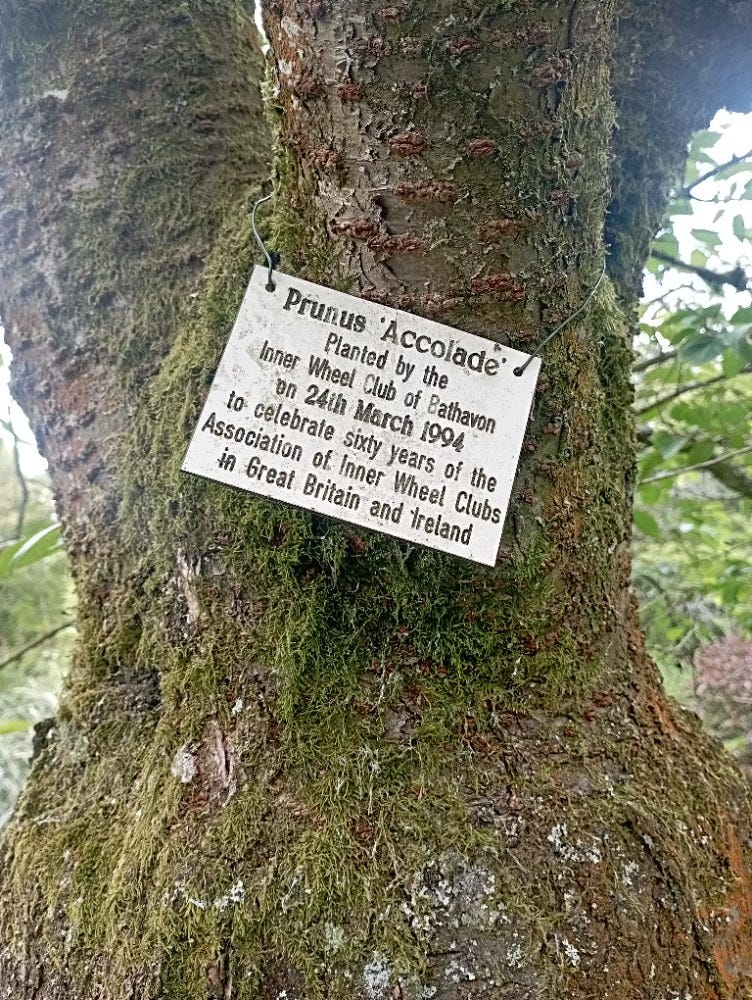 Prunus 'Accolade'
Planted by the
Inner Wheel Club of Bathavon
on 24th March 1994
to celebrate sixty years of the
Association of Inner Wheel Clubs
in Great Britain and Ireland